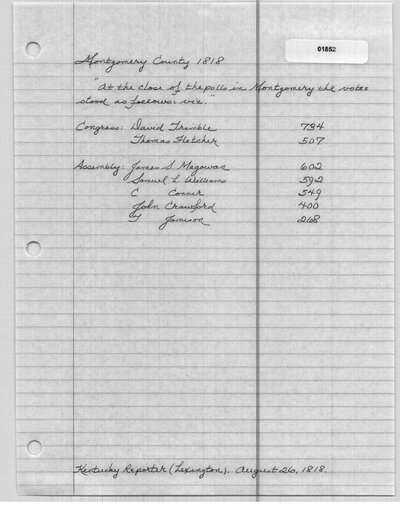 01852
Montgomery County 1818
"At the close of the polls in Montgomery the votes
stood as follows: viz."
Congress: David Trimble 734
Thomas Fletcher 507
Assembly: James S. Magowan 602
Samuel L. Williams 592
C Conner 549
John Crawford 400
T Jamison 268
Kentucky Reporter (Lexington). August 26, 1818.